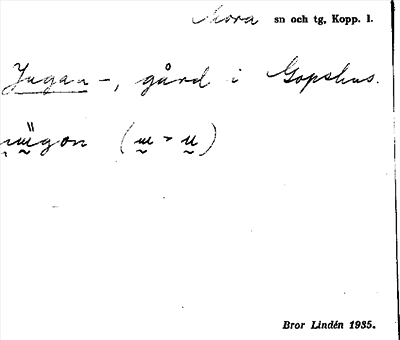 Mora sn och tg, Kopp. l.
Jugan-, gård i Gopshus.
(ɯ > u)
Bror Lindén 1935.